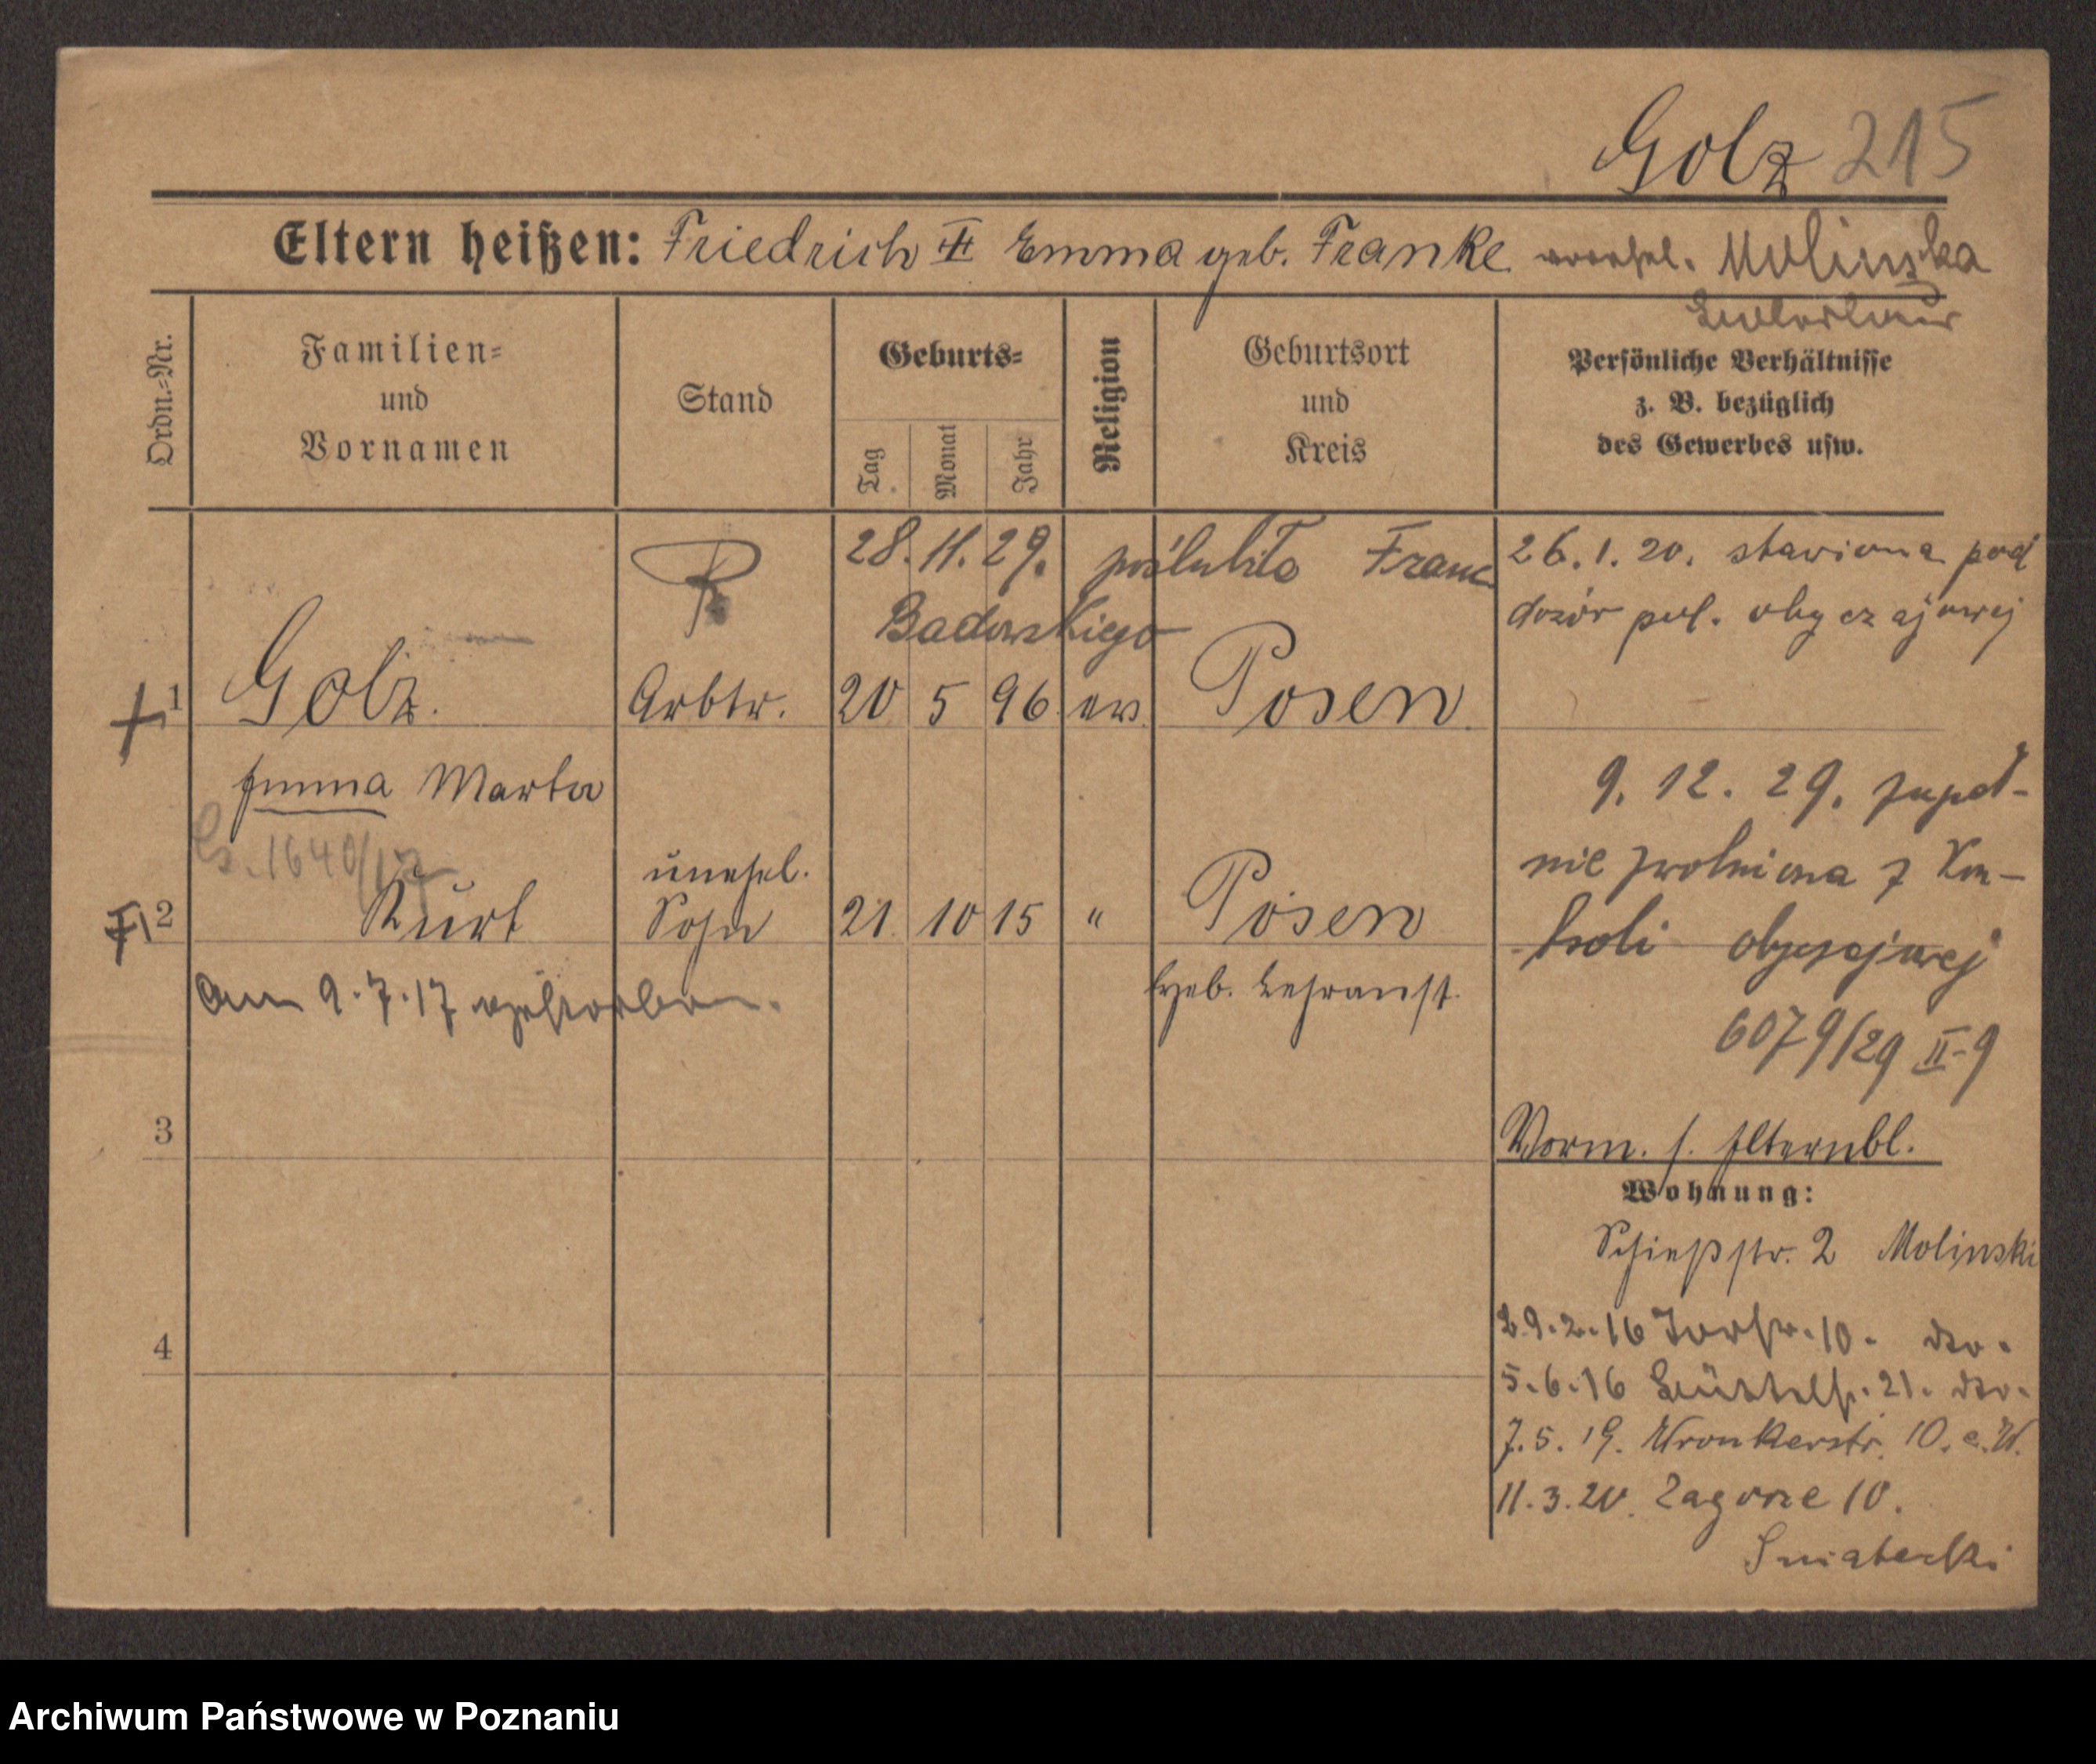 Golz 215
Eltern heißen: Friedrich ⚔ Emma geb. Franke verehel. Molinska
Ordn.-Nr.
Familien-
und
Vornamen
Stand
Geburts-
Tag
Monat
Jahr
Religion
Geburtsort
und
Kreis
Persönliche Verhältnisse
z. B. bezüglich
des Gewerbes usw.
28. 11. 29. poślubiła Franc
Badowskiego
26. 1. 20. stawiona pod
dozór pol. obyczajowej
1 Golz. Arbtr. 20 5 96 ev. Posen
Emma Marta
9. 12. 29. zupeł-
nie zwolniona z Kon-
troli obyczajowej
6079/29 II-9
1640/17
2 Kurt unehel. Sohn 21. 10 15 " Posen
Hgeb. Lehranst.
Am 9.7.17 gestorben.
3
Vorm. s. Elternbl.
Wohnung:
Schießstr. 2 Molinski
29.2.16 Torstr. 10. do.
5.6.16 21. do.
7.5.19. Wronkerstr. 10. e. W.
4
11.3.20. Zagorze 10.
Sniatecki
Archiwum Państwowe w Poznaniu